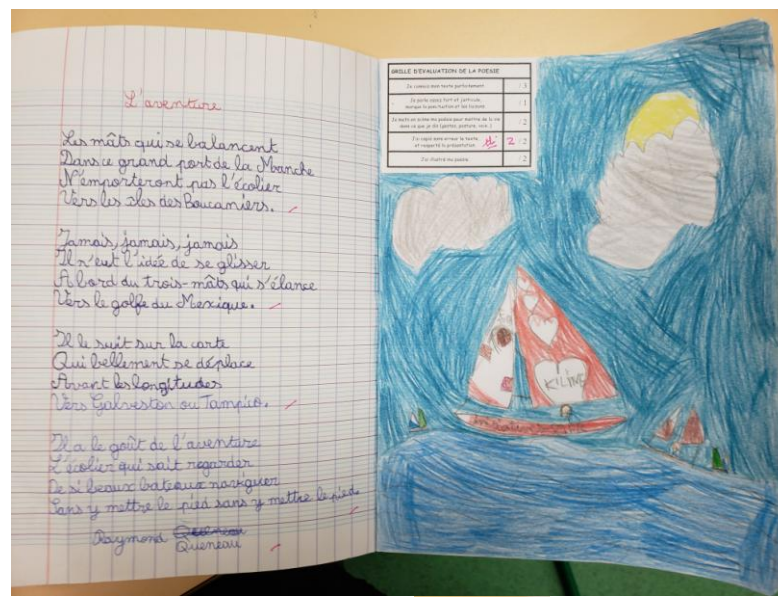 L'aventure
Les mâts qui se balancent
Dans ce grand port de la Manche
N'emporteront pas l'écolier
Vers les îles des Boucaniers.
Jamais, jamais, jamais
Il n'eut l'idée de se glisser
A bord du trois-mâts qui s'élance
Vers le golfe du Mexique.
Il le suit sur la carte
Qui bellement se déplace
Avant les longitudes
Vers Galveston ou Tampico.
Il a le goût de l'aventure
L'écolier qui sait regarder
De si beaux bateaux naviguer
Sans y mettre le pied sans y mettre le pied
Raymond
Queneau
GRILLE D'EVALUATION DE LA POESIE
Je connais mon texte parfaitement. / 3
Je parle assez fort et j'articule,
marque la ponctuation et les liaisons. / 1
Je mets en scène ma poésie pour mettre de la vie
dans ce que je dis (gestes, posture, voix..) / 2
J'ai copié sans erreur le texte
et respecté la présentation. 2 / 2
J'ai illustré ma poésie. / 2
KILING